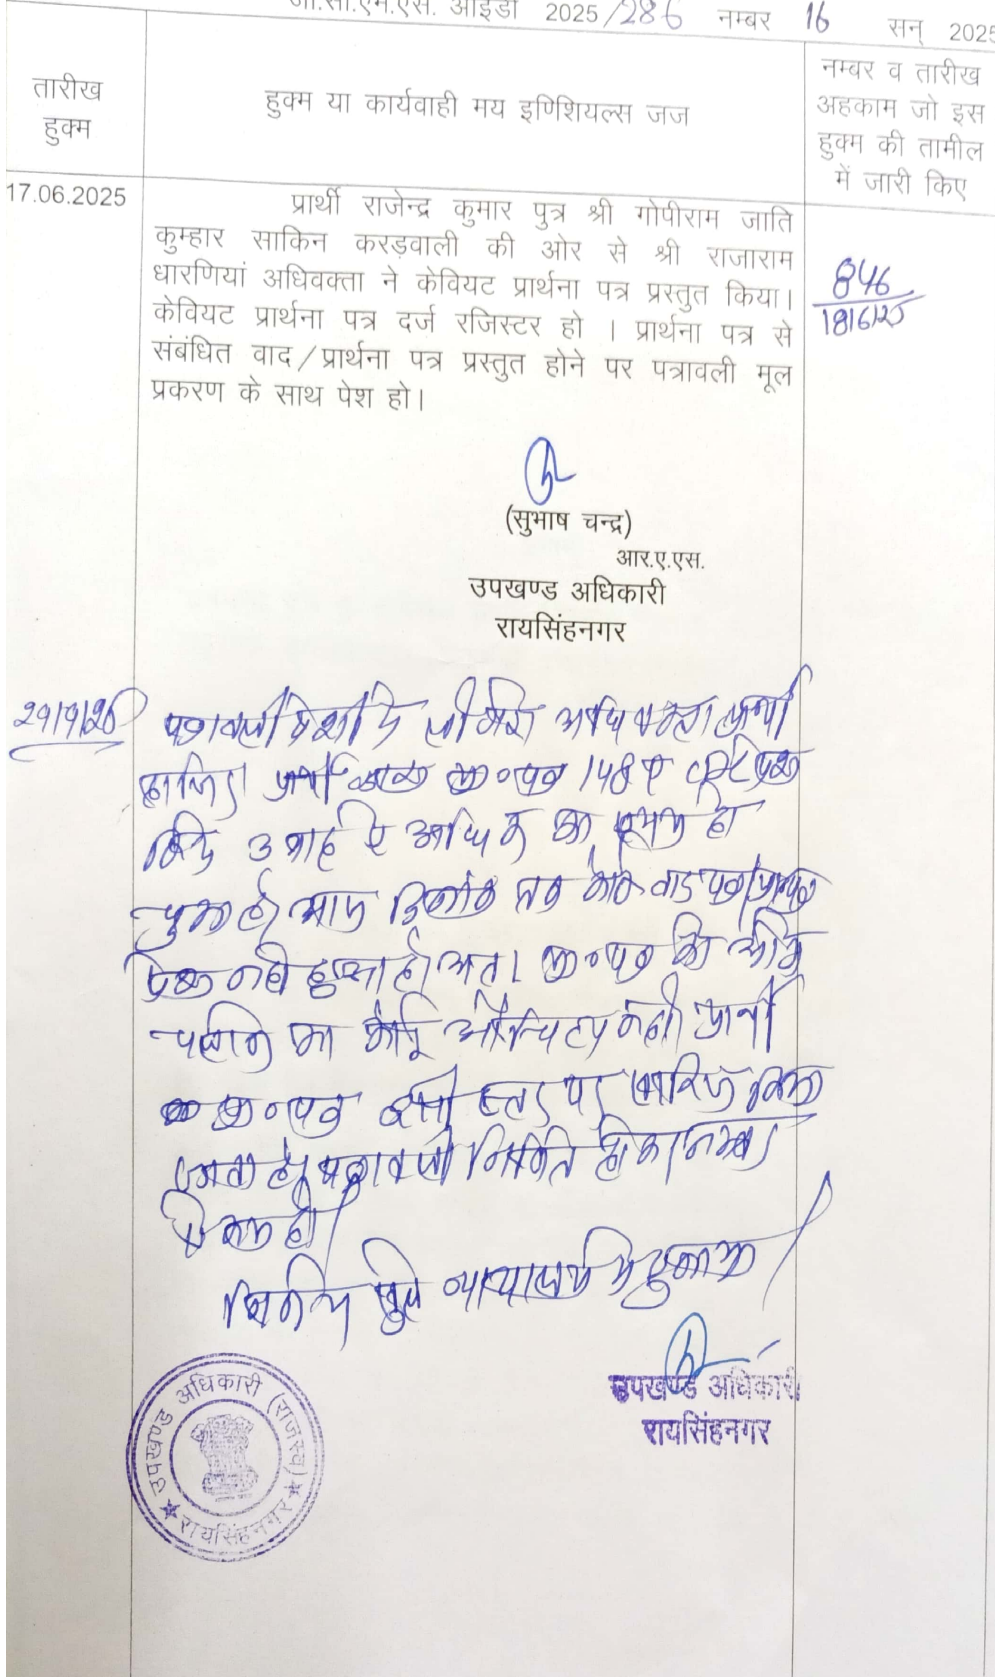 जी.सी.एम.एस. आईडी 2025/286 नम्बर 16 सन् 2025
तारीख
हुक्म
हुक्म या कार्यवाही मय इणिशियल्स जज
नम्बर व तारीख
अहकाम जो इस
हुक्म की तामील
में जारी किए
17.06.2025
प्रार्थी राजेन्द्र कुमार पुत्र श्री गोपीराम जाति
कुम्हार साकिन करड़वाली की ओर से श्री राजाराम
धारणियां अधिवक्ता ने केवियट प्रार्थना पत्र प्रस्तुत किया।
केवियट प्रार्थना पत्र दर्ज रजिस्टर हो । प्रार्थना पत्र से
संबंधित वाद/प्रार्थना पत्र प्रस्तुत होने पर पत्रावली मूल
प्रकरण के साथ पेश हो।
846
18/6/25
(सुभाष चन्द्र)
आर.ए.एस.
उपखण्ड अधिकारी
रायसिंहनगर
पत्रावली पेश अधिवक्ता प्रार्थी
हाजिर। प्रार्थी 148ए पेश
किये 3 माह से अधिक का समय हो
चुका है। आज दिनांक तक कोई वाद पत्र/प्रा०पत्र
पेश नही हुआ है। अतः प्रा०पत्र को
चलाने का कोई औचित्य नही। प्रार्थी
का प्रा०पत्र इसी स्तर पर खारिज किया
जाता है। पत्रावली निर्णित होकर नम्बर
से कम हो।
निर्णय खुले न्यायालय मे सुनाया
उपखण्ड अधिकारी
रायसिंहनगर
उपखण्ड अधिकारी (राजस्व)
रायसिंहनगर